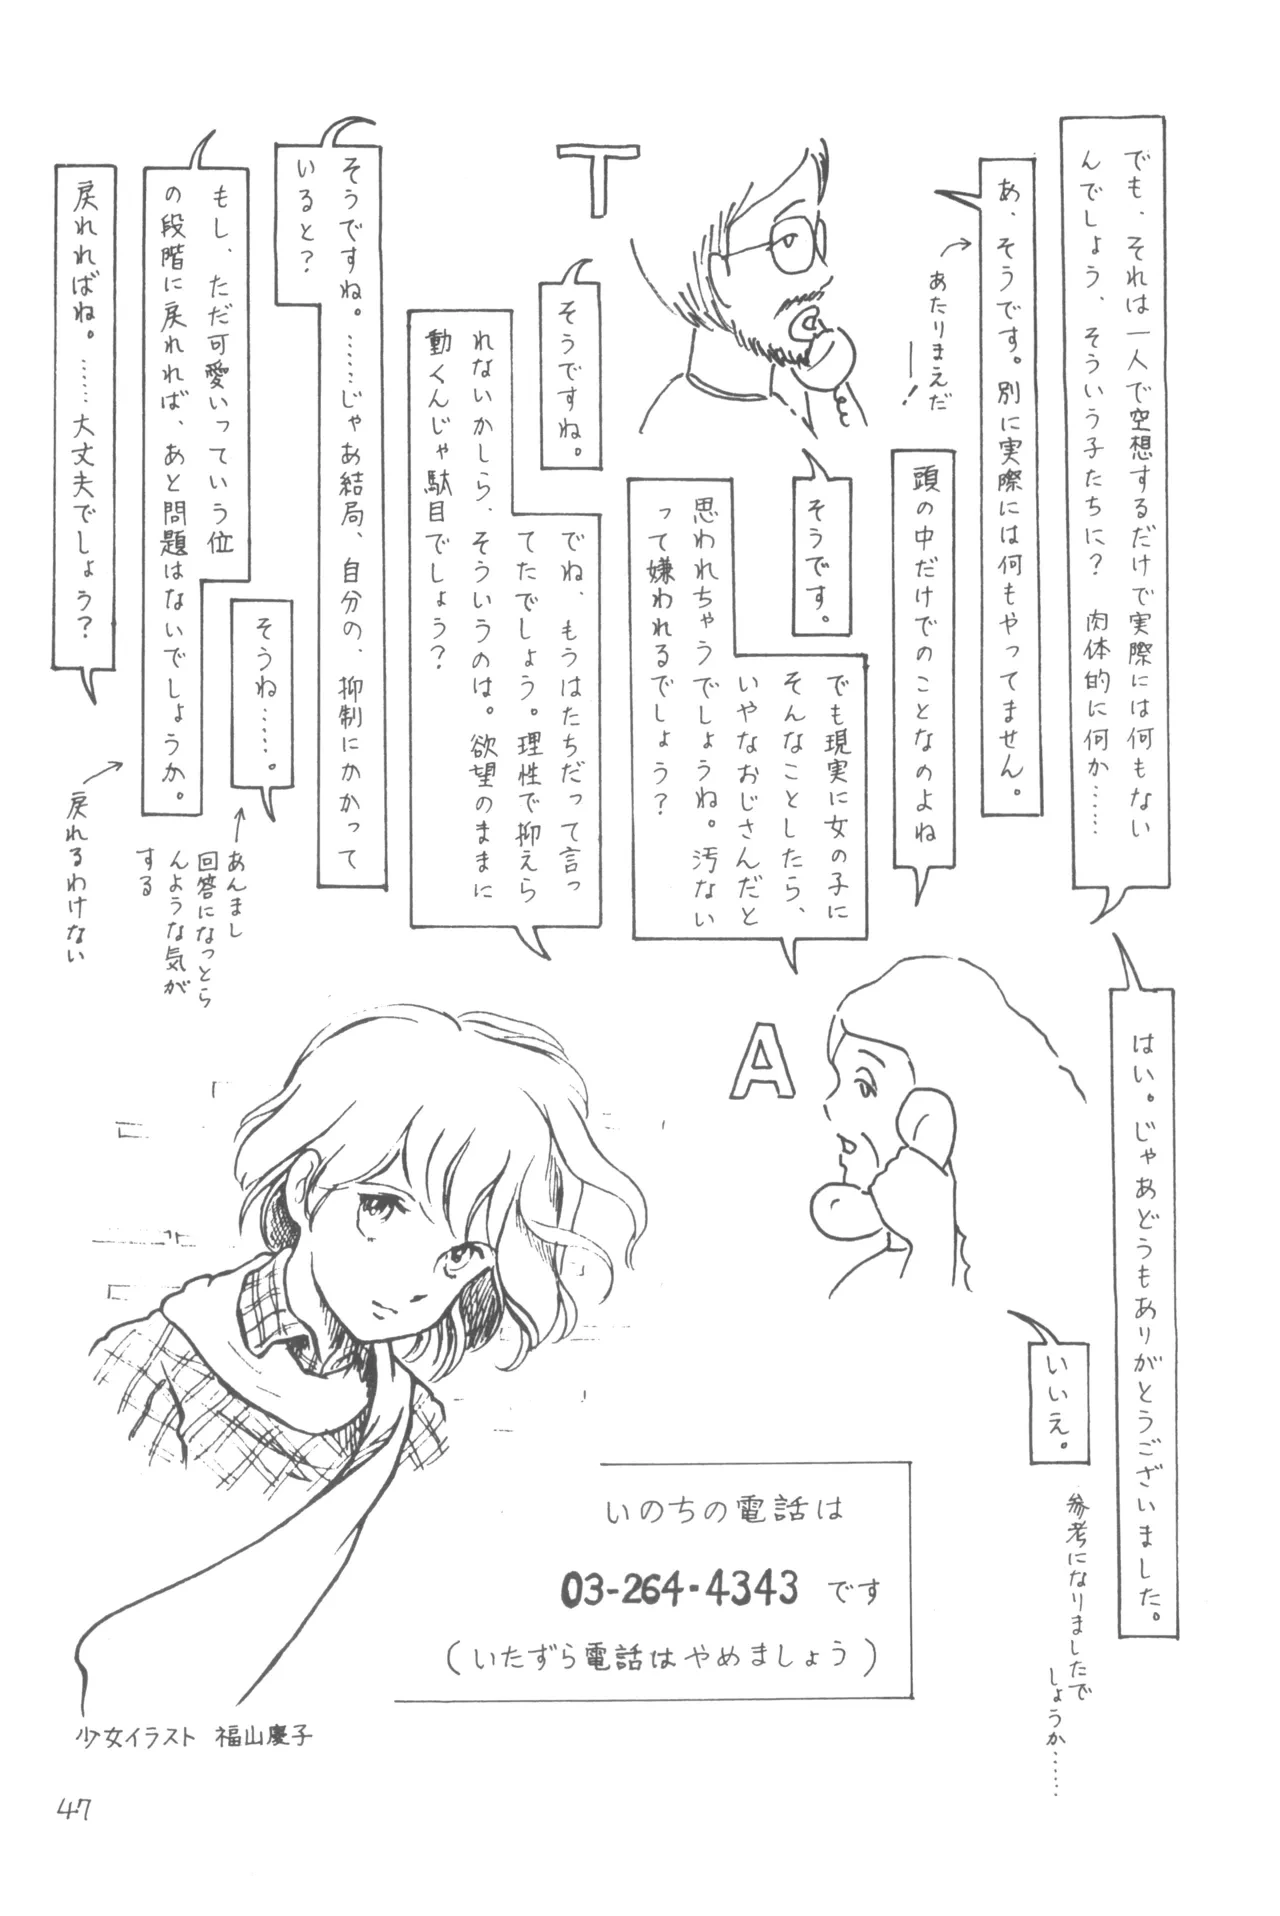 でも、それは一人で空想するだけで実際には何もない
んでしょう、そういう子たちに？　肉体的に何か……
あ、そうです。別に実際には何もやってません。
あたりまえだ
ー！
頭の中だけでのことなのよね
そうです。
でも現実に女の子に
そんなことしたら、
いやなおじさんだと
思われちゃうでしょうね。汚ない
って嫌われるでしょう？
T
そうですね。
でね、もうはたちだって言っ
てたでしょう。理性で抑えら
れないかしら、そういうのは。欲望のままに
動くんじゃ駄目でしょう？
そうですね。……じゃあ結局、自分の、抑制にかかって
いると？
そうね……。
あんまし
回答になっとら
んような気が
する
もし、ただ可愛いっていう位
の段階に戻れれば、あと問題はないでしょうか。
戻れればね。……大丈夫でしょう？
戻れるわけない
はい。じゃあどうもありがとうございました。
A
いいえ。
参考になりましたで
しょうか……
いのちの電話は
03-264・4343 です
（いたずら電話はやめましょう）
少女イラスト　福山慶子
47